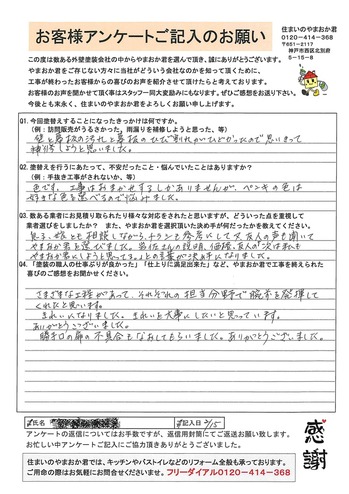 お客様アンケートご記入のお願い
住まいのやまおか君
0120-414-368
〒651-2117
神戸市西区北別府
5-15-8
この度は数ある外壁塗装会社の中からやまおか君を選んで頂き、誠にありがとうございます。
やまおか君をご存じない方々に当社がどういう会社なのかを知って頂くために、
工事が終わったお客様からの喜びのお声を紹介させて頂けたらと考えております。
お客様のお声を聞かせて頂く事はスタッフ一同大変励みになります。ぜひご感想をお送り下さい。
今後とも末永く、住まいのやまおか君をよろしくお願い申し上げます。
Q1. 今回塗替えすることになったきっかけは何ですか。
(例：訪問販売がうるさかった。雨漏りを補修しようと思った、等)
壁と幕板の汚れと幕板のひび割れがひどかったので思いきって
補修しようと思いました。
Q2. 塗替えを行うにあたって、不安だったこと・悩んでいたことはありますか?
(例：手抜き工事がされないか、等)
色です。工事はおまかせするしかありませんが、ペンキの色は
好きな色を選べるので悩みました。
Q3. 数ある業者にお見積り取られたり様々な対応をされたと思いますが、どういった点を重視して
業者選びをしましたか？また、やまおか君を選択頂いた決め手が何だったかを教えてください。
見る様にも相談しながら、チラシを参考にして又友人の声も聞いて
やまおか君を選びました。担当さんの説明、価格、友人の「次は私も
やまおか君にしようと思ってる」との言葉が決め手になりました。
Q4. 「塗装の職人の仕事ぶりが良かった」「仕上りに満足出来た」など、やまおか君で工事を終えられた
喜びのご感想をお聞かせください。
さまざまな工程があって、それぞれの担当分野で腕前を発揮して
くれたと思います。
きれいになりました。きれいを大事にしたいと思っています。
ありがとうございました。
勝手口の扉の不具合もなおしてもらいました。ありがとうございました。
氏名
記入日 2/15
アンケートの返信についてはお手数ですが、返信用封筒にてご返送お願い致します。
お忙しい中アンケートにご記入にご協力頂きありがとうございました。
感謝
住まいのやまおか君では、キッチンやバストイレなどのリフォーム全般も承っております。
ご用命の際はお気軽にお問合せくださいませ。フリーダイアル0120-414-368